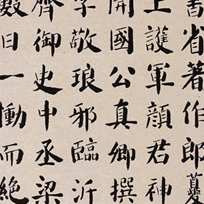 書省著作郎夔
上護軍顏君神
開國公真卿撰
字敬琅邪臨沂
齊御史中丞梁
數日一慟而絕